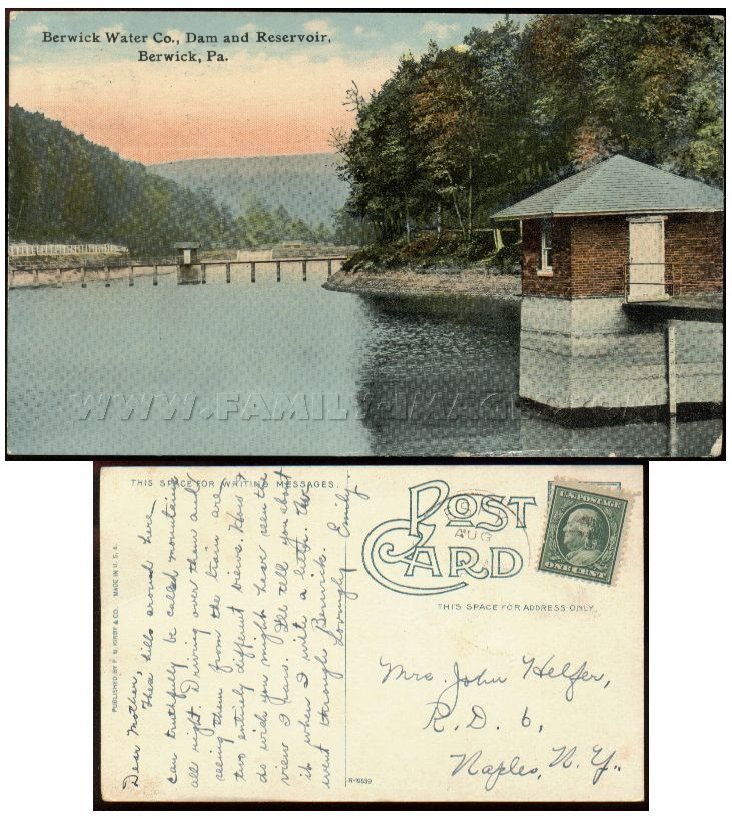 Berwick Water Co., Dam and Reservoir,
Berwick, Pa.
WWW.FAMILY-IMAGES.COM
THIS SPACE FOR WRITING MESSAGES.
POST
CARD
AUG
U.S. POSTAGE
ONE CENT
THIS SPACE FOR ADDRESS ONLY.
PUBLISHED BY P. N. KIRBY & CO. MADE IN U. S. A.
Dear Mother,
Thea hills around here
can truthfully be called mountains
all right. Driving over them and
seeing them from the train are
two entirely different views. How I
do wish you might have seen the
view I saw. I'll tell you about
it when I write a letter. We
went through Berwick.
Lovingly Emily
Mrs. John Helfer,
R. D. 6,
Naples, N. Y.,